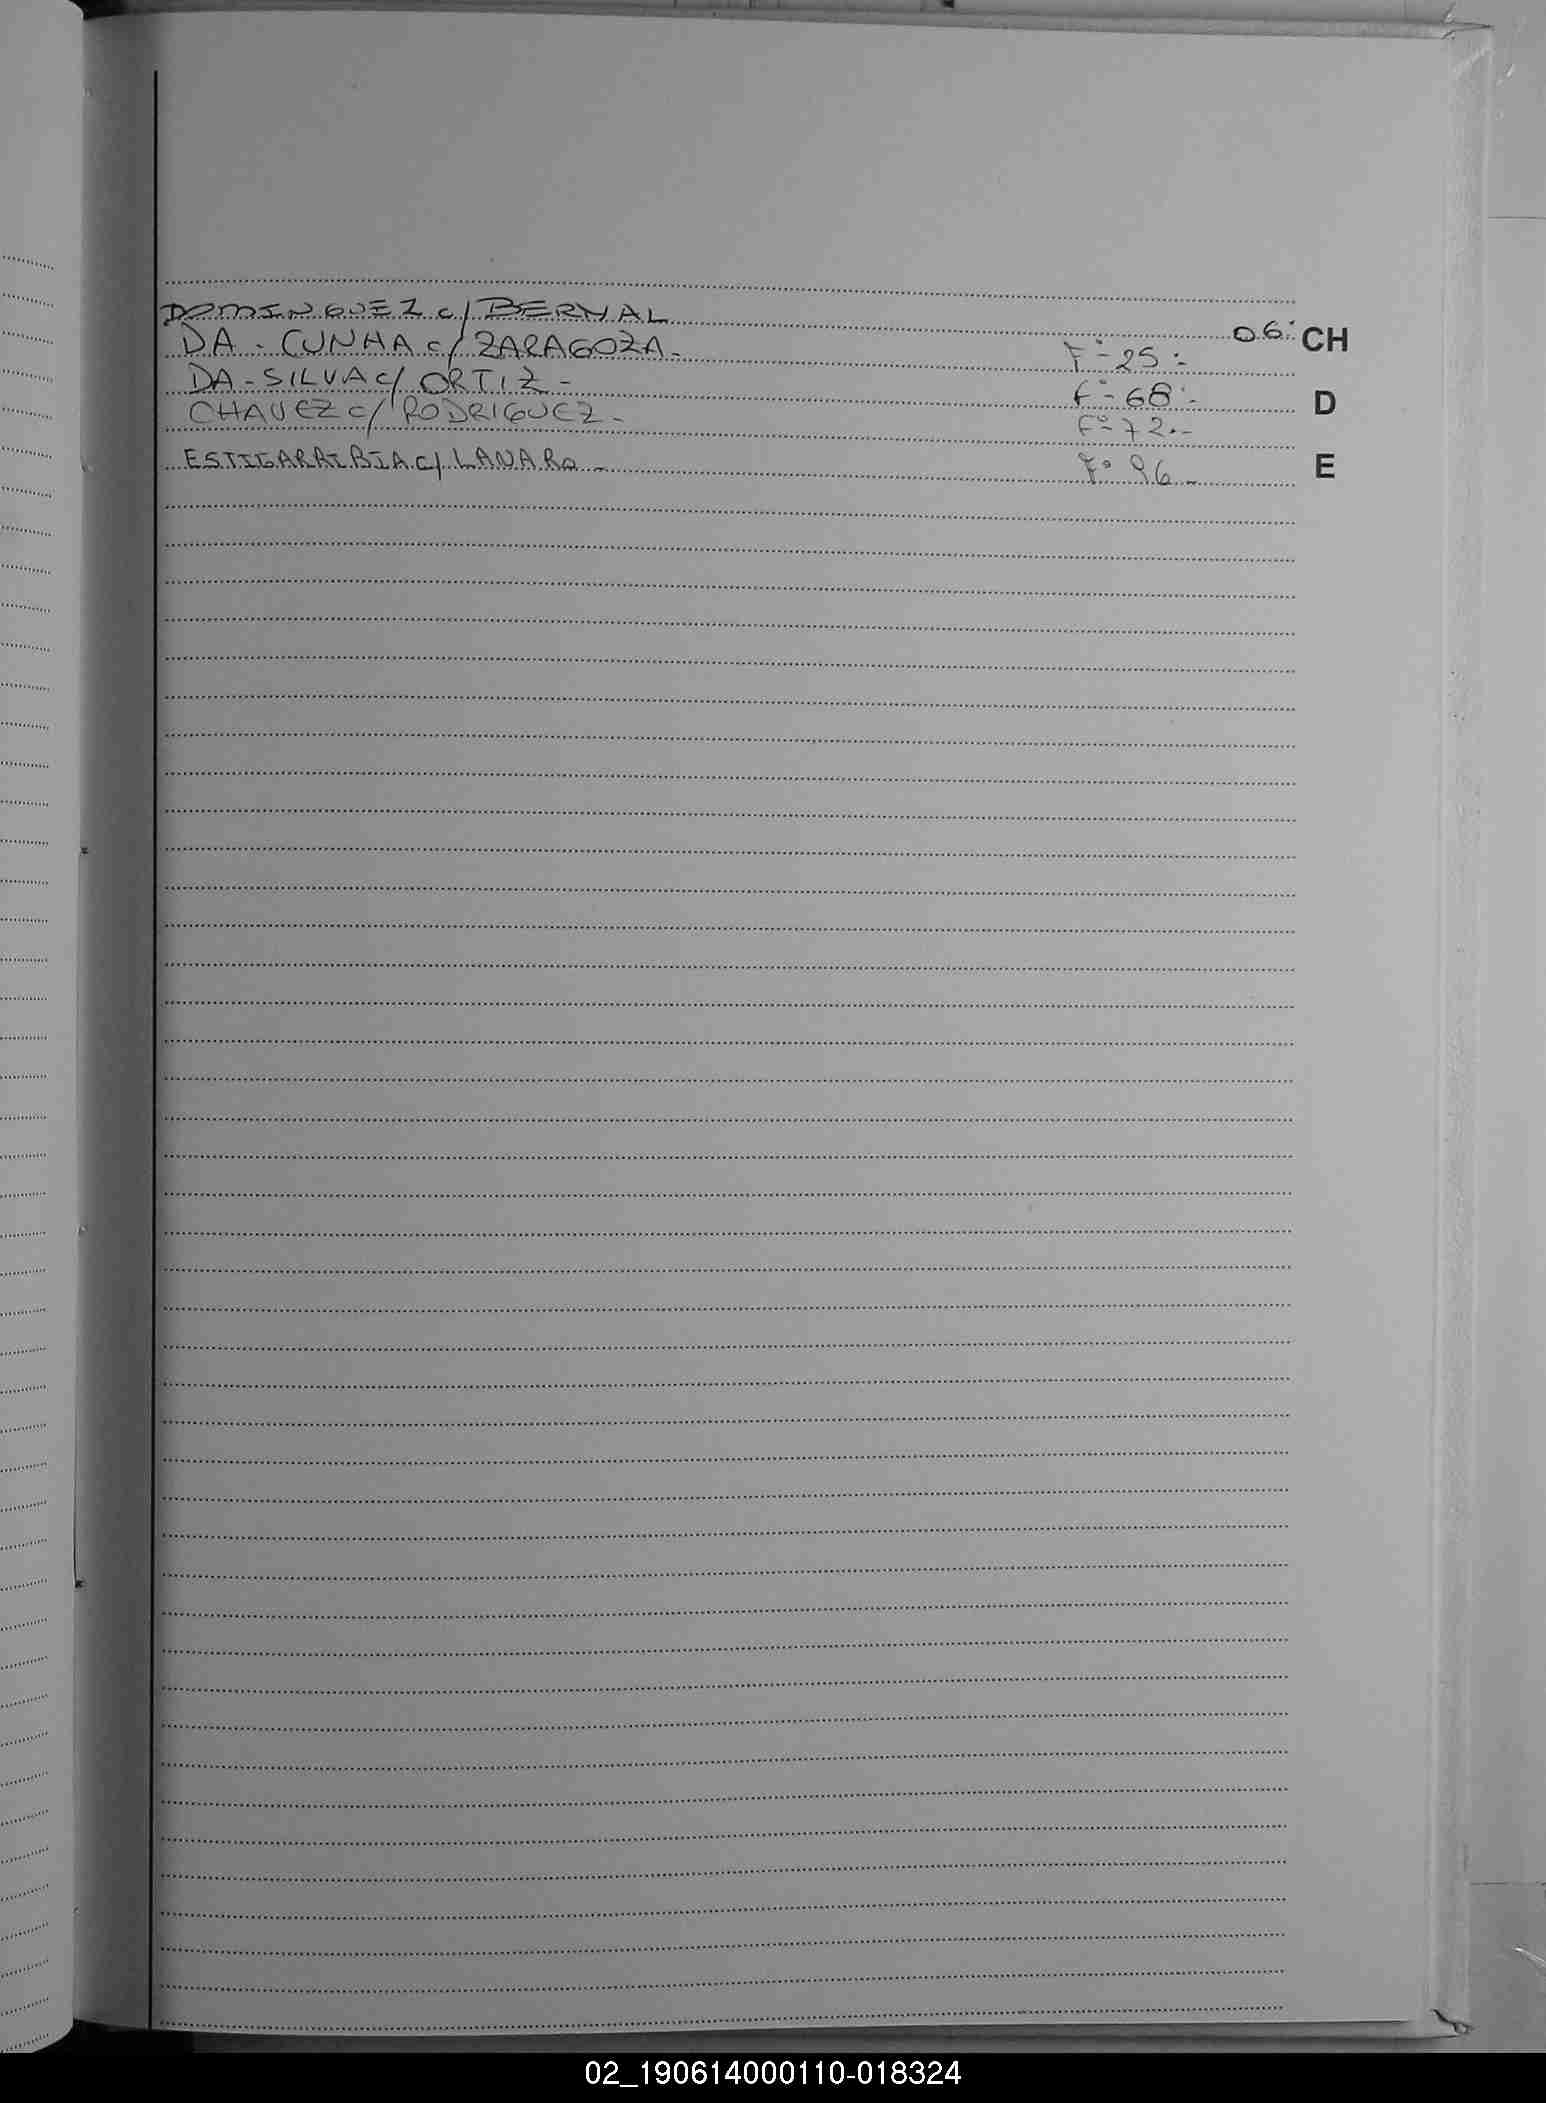 DOMINGUEZ c/ BERNAL 06.- CH
DA - CUNHA c/ ZARAGOZA - Fº - 25 -
DA - SILVA c/ ORTIZ - Fº - 68 - D
CHAVEZ c/ RODRIGUEZ - Fº - 72.-
ESTIGARRIBIA c/ LANARO - Fº 96 - E
02_190614000110-018324